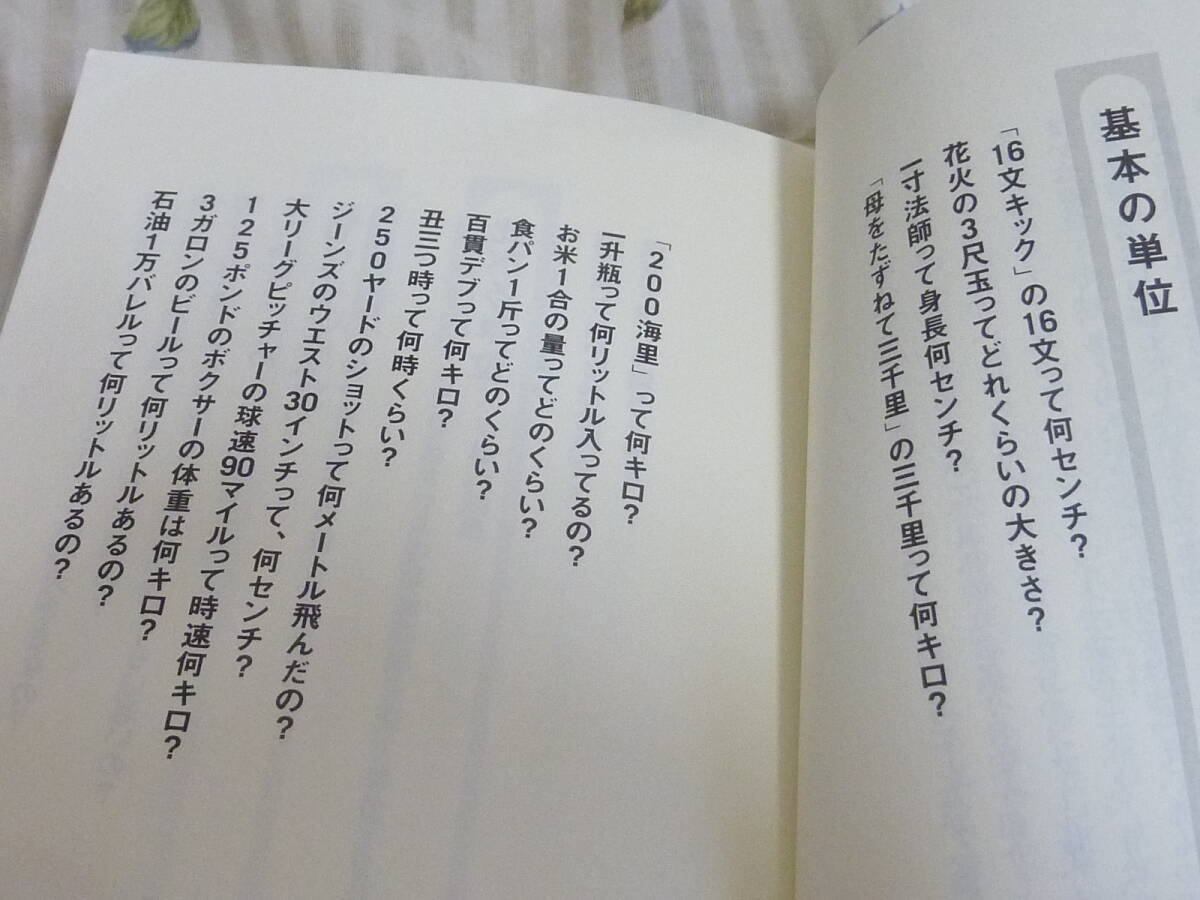 基本の単位
「16文キック」の16文って何センチ?
花火の3尺玉ってどれくらいの大きさ?
一寸法師って身長何センチ?
「母をたずねて三千里」の三千里って何キロ?
「200海里」って何キロ?
一升瓶って何リットル入ってるの?
お米1合の量ってどのくらい?
食パン1斤ってどのくらい?
百貫デブって何キロ?
丑三つ時って何時くらい?
250ヤードのショットって何メートル飛んだの?
ジーンズのウエスト30インチって、何センチ?
大リーグピッチャーの球速90マイルって時速何キロ?
125ポンドのボクサーの体重は何キロ?
3ガロンのビールって何リットルあるの?
石油1万バレルって何リットルあるの?